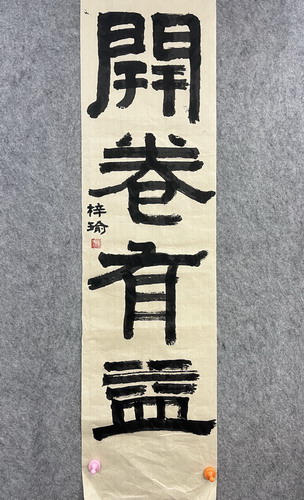 開卷有益
梓瑜